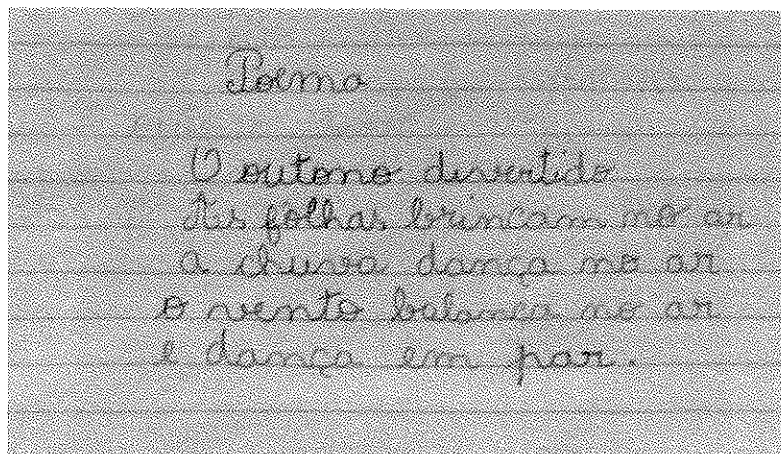 Poema
O outono divertido
As folhas brincam no ar
a chuva dança no ar
o vento balança no ar
e dança em par.